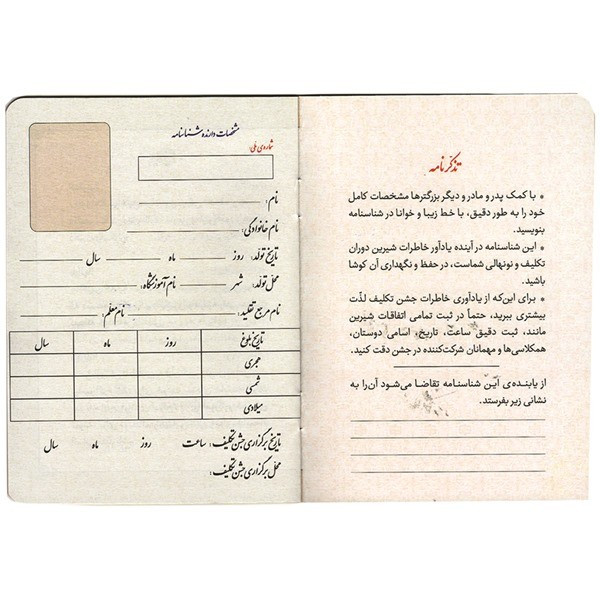 تذکّرنامه
• با کمک پدر و مادر و دیگر بزرگترها مشخصات کامل
خود را به طور دقیق، با خط زیبا و خوانا در شناسنامه
بنویسید.
• این شناسنامه در آینده یادآور خاطرات شیرین دوران
تکلیف و نونهالی شماست، در حفظ و نگهداری آن کوشا
باشید.
• برای این‌که از یادآوری خاطرات جشن تکلیف لذّت
بیشتری ببرید، حتماً در ثبت تمامی اتفاقات شیرین
مانند، ثبت دقیق ساعت، تاریخ، اسامی دوستان،
همکلاسی‌ها و مهمانان شرکت‌کننده در جشن دقت کنید.
از یابنده‌ی این شناسنامه تقاضا می‌شود آن را به
نشانی زیر بفرستد.
مشخصات دارنده شناسنامه
شماره‌ی ملی:
نام:
نام خانوادگی:
تاریخ تولد: روز ماه سال
محل تولد: شهر نام آموزشگاه:
نام مرجع تقلید: نام معلم:
تاریخ بلوغ روز ماه سال
هجری
شمسی
میلادی
تاریخ برگزاری جشن تکلیف: ساعت روز ماه سال
محل برگزاری جشن تکلیف: